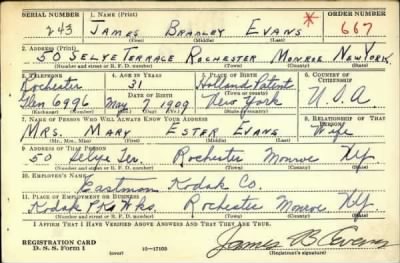 SERIAL NUMBER 1. NAME (Print) ORDER NUMBER
243 JAMES BRADLEY EVANS * 667
(First) (Middle) (Last)
2. ADDRESS (Print)
50 SELYE TERRACE ROCHESTER MONROE NEW YORK
(Number and street or R. F. D. number) (Town) (County) (State)
3. TELEPHONE 4. AGE IN YEARS 5. PLACE OF BIRTH 6. COUNTRY OF CITIZENSHIP
Rochester 31 Holland Patent
DATE OF BIRTH (Town or county)
Glen 6996 May 7 1909 New York U.S.A
(Exchange) (Number) (Mo.) (Day) (Yr.) (State or country)
7. NAME OF PERSON WHO WILL ALWAYS KNOW YOUR ADDRESS 8. RELATIONSHIP OF THAT PERSON
MRS. MARY ESTER EVANS Wife
(Mr., Mrs., Miss) (First) (Middle) (Last)
9. ADDRESS OF THAT PERSON
50 Selye Ter. Rochester Monroe NY.
(Number and street or R. F. D. number) (Town) (County) (State)
10. EMPLOYER'S NAME
Eastman Kodak Co.
11. PLACE OF EMPLOYMENT OR BUSINESS
Kodak Pk Wks. Rochester Monroe NY.
(Number and street or R. F. D. number) (Town) (County) (State)
I AFFIRM THAT I HAVE VERIFIED ABOVE ANSWERS AND THAT THEY ARE TRUE.
REGISTRATION CARD
D. S. S. Form 1 (over) 16—17105 James B Evans
(Registrant's signature)